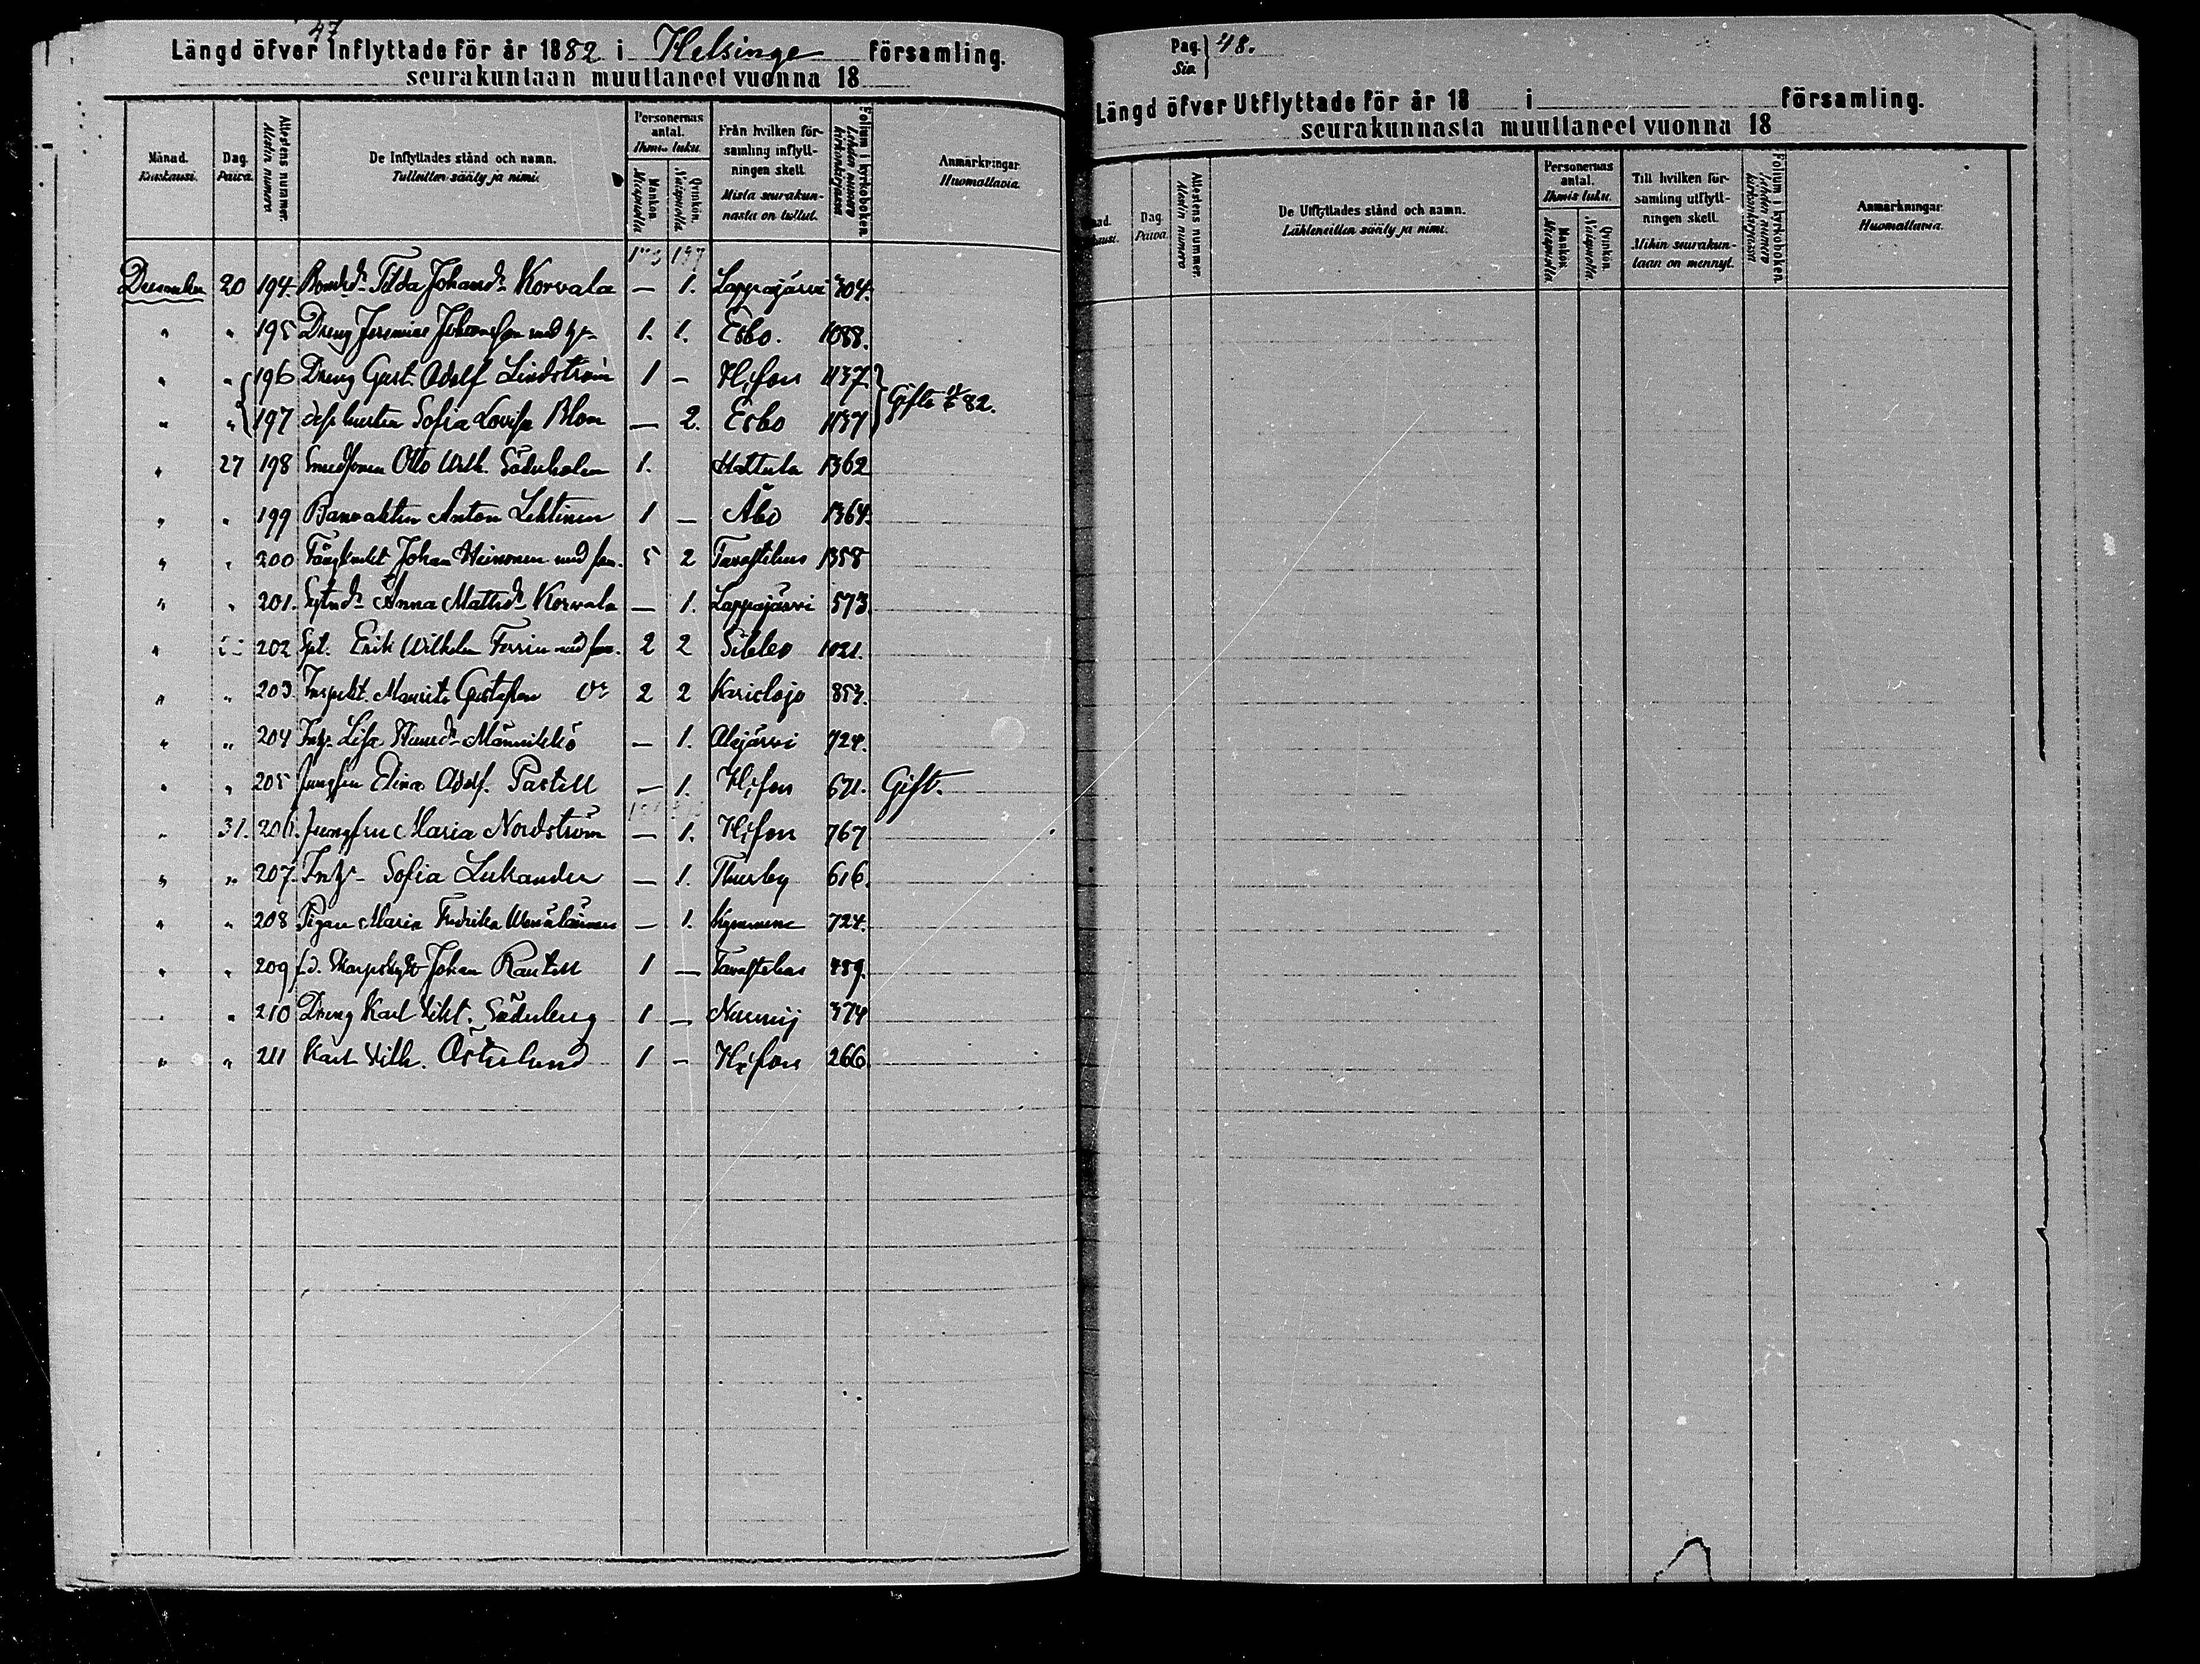 47
Längd öfver Inflyttade för år 1882 i Helsinge församling.
seurakuntaan muuttaneet vuonna 18
Månad. Kuukausi.
Dag. Päivä.
Attestens nummer. Alestin numero.
De Inflyttades stånd och namn.
Tulleitten sääty ja nimi.
Personernas antal. Ihmis luku.
Mankön. Miespuolia
Qvinkön. Naispuolia.
Från hvilken församling inflyttningen skett.
Mista seurakunnasta on tullut.
Folium i kyrkoboken. Lehden numero kirkonkirjassa
Anmärkningar
Huomattavia.
December 20 194. Tilda Johansdr Korvala — 1. Lappajärvi 304.
" " 195 Dreng Jeremias Johansson med 1. 1. Esbo. 1088.
" " 196 Dreng Gust. Adolf Lindström 1 — H:fors 1137.
" " 197 dess hustru Sofia Lovisa Blom — 2. Esbo 1137 Gifte 82.
" 27 198 Smedsonen Otto Wilh. Söderholm 1. Hattula 1362
" " 199 Banvakten Anton Lehtinen 1 — Åbo 1364.
" " 200 Johan Heinonen med fam. 5 2 Tavastehus 1358
" " 201. Anna Mattsdr Korvala — 1. Lappajärvi 573.
" 202 Erik Wilhelm Forsin med fam. 2 2 Sibbo 1021.
" " 203. Inspekt. Maurits Gustafsson 2 2 Karislojo 853.
" " 204 Lisa Männikkö — 1. Alajärvi 724.
" " 205 Jungfru Elina Adolf. Pastell — 1. H:fors 671. Gift.
" 31. 206. Jungfru Maria Nordström — 1. H:fors 767
" " 207. Sofia Lukander — 1. Thusby 616.
" " 208 Pigan Maria Fredrika — 1. Kymmene 724.
" " 209 f.d. Skarpskytt Johan Rantell 1 — Tavastehus 489.
" " 210 Dreng Karl Vikt. Söderberg 1 — Nummij 374
" " 211 Karl Vilh. Österlund 1 — H:fors 266.
Pag. Siv. 48.
Längd öfver Utflyttade för år 18 i församling.
seurakunnasta muuttaneet vuonna 18
Dag. Päivä.
Attestens nummer. Alestin numero
De Utflyttades stånd och namn.
Lähteneitten sääty ja nimi.
Personernas antal. Ihmis luku.
Mankön. Miespuolia
Qvinkön. Naispuolia.
Till hvilken församling utflyttningen skett.
Mihin seurakuntaan on mennyt.
Folium i kyrkoboken. Lehden numero kirkonkirjassa
Anmärkningar
Huomattavia.